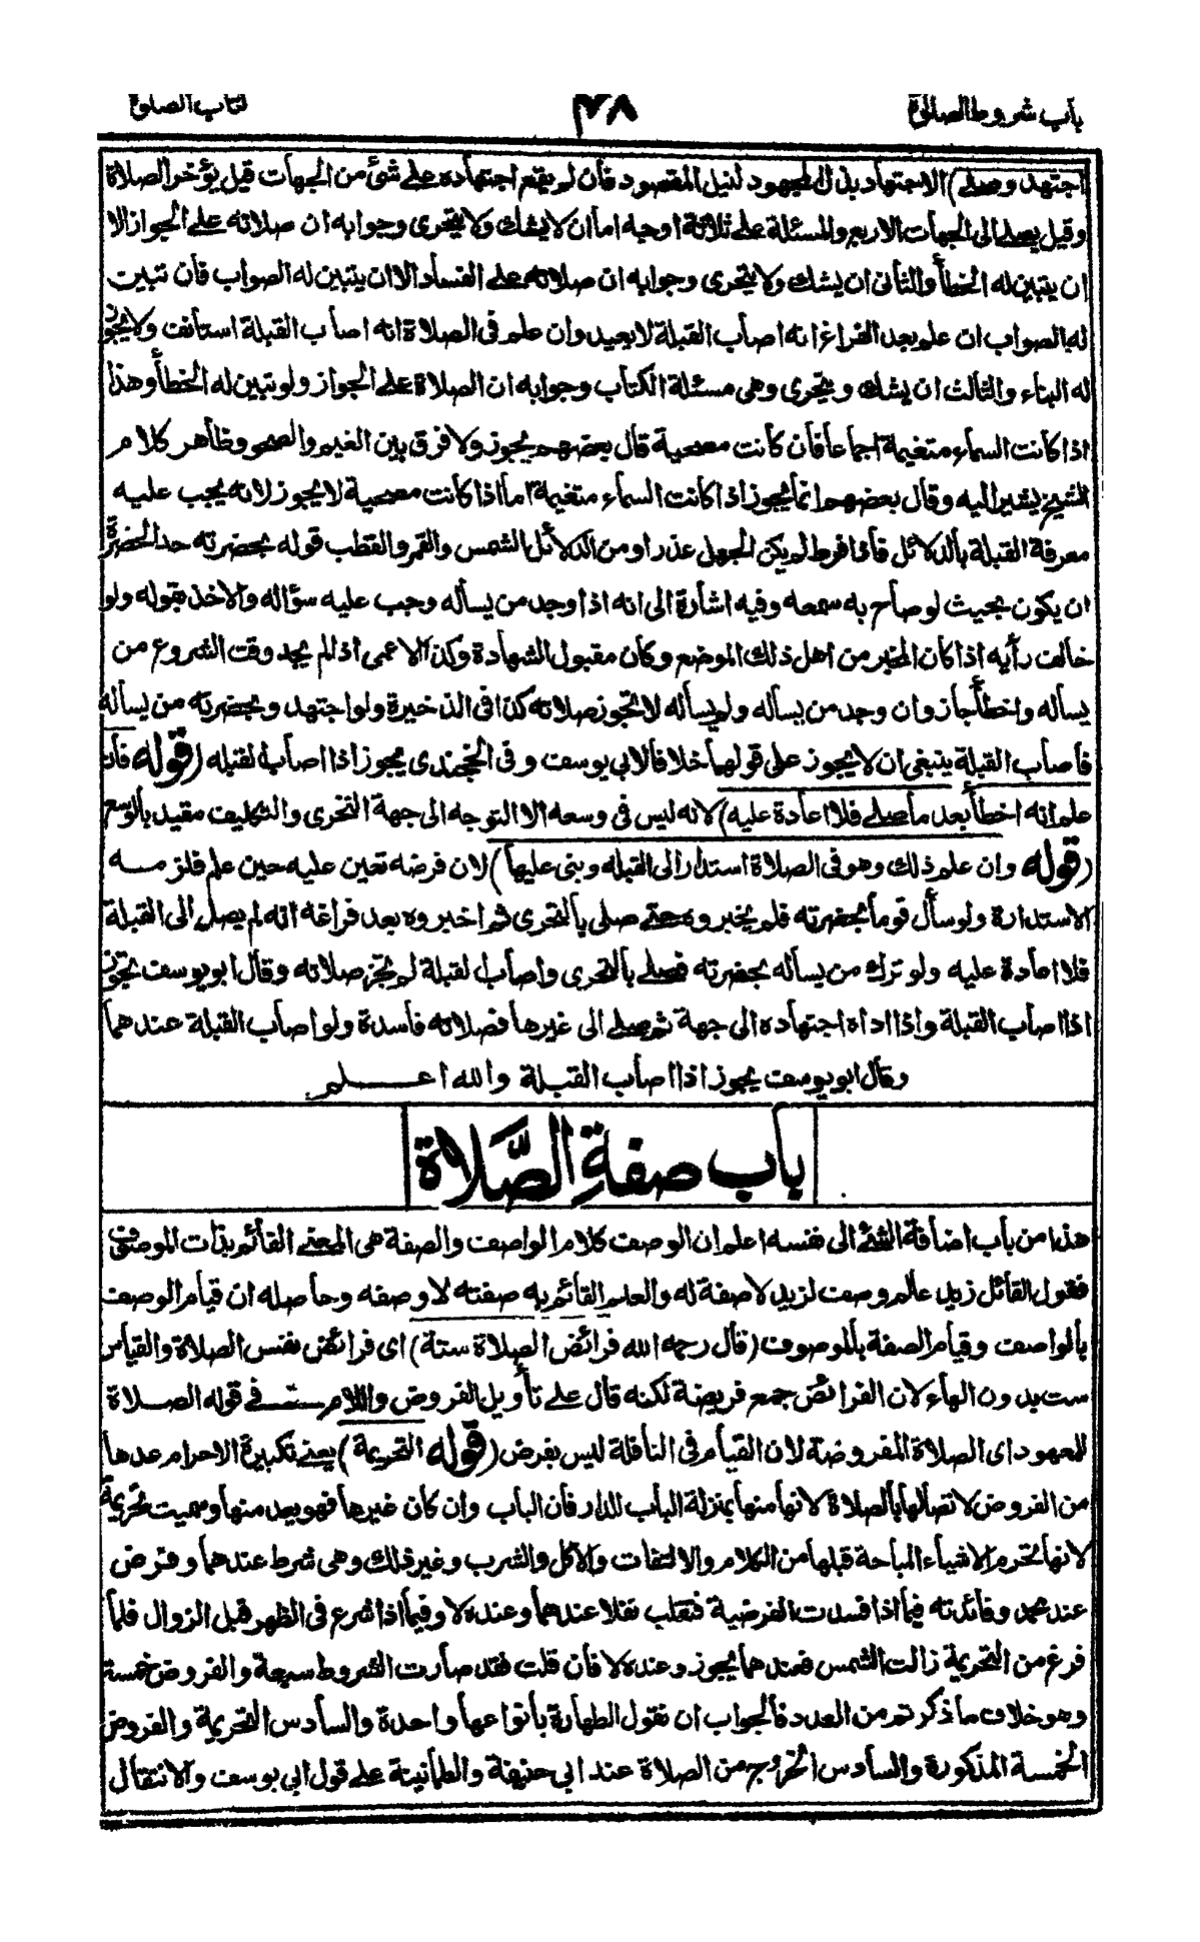 باب شروط الصلوة ٤٨ كتاب الصلوة
اجتهد وصلى) الاجتهاد بذل المجهود لنيل المقصود فأن لم يقع اجتهاده على شئ من الجهات قيل يؤخر الصلاة
وقيل يصلى الى الجهات الاربع والمسئلة على ثلاثة اوجه اما ان لا يشك ولا يتحرى وجوابه ان صلاته على الجواز الا
ان يتبين له الخطأ والثانى ان يشك ولا يتحرى وجوابه ان صلاته على الفساد الا ان يتبين له الصواب فأن تبين
له الصواب ان علم بعد الفراغ انه اصاب القبلة لا يعيد وان علم فى الصلاة انه اصاب القبلة استأنف ولا يجوز
له البناء والثالث ان يشك ويتحرى وهى مسئلة الكتاب وجوابه ان الصلاة على الجواز ولو تبين له الخطأ وهذا
اذا كانت السماء متغيمة اجماعا فأن كانت مصحية قال بعضهم يجوز ولا فرق بين الغيم والصحو وظاهر كلام
الشيخ يشير اليه وقال بعضهم انما يجوز اذا كانت السماء متغيمة اما اذا كانت مصحية لا يجوز لانه يجب عليه
معرفة القبلة بالدلائل فأذا فرط لم يكن الجهل عذرا ومن الدلائل الشمس والقمر والقطب قوله بحضرته حد الحضرة
ان يكون بحيث لو صاح به سمعه وفيه اشارة الى انه اذا وجد من يسأله وجب عليه سؤاله والاخذ بقوله ولو
خالف رأيه اذا كان المخبر من اهل ذلك الموضع وكان مقبول الشهادة وكذا الاعمى اذا لم يجد وقت الشروع من
يسأله واخطأ جاز وان وجد من يسأله ولم يسأله لا تجوز صلاته كذا فى الذخيرة ولو اجتهد وبحضرته من يسأله
فأصاب القبلة ينبغى ان لا يجوز على قولهما خلافا لابى يوسف وفى الخجندى يجوز اذا اصاب القبله (قوله فأن
علم انه اخطأ بعد ما صلى فلا اعادة عليه) لانه ليس فى وسعه الا التوجه الى جهة التحرى والتكليف مقيد بالوسع
(قوله وان علم ذلك وهو فى الصلاة استدار الى القبله وبنى عليها) لان فرضه تعين عليه حين علم فلزمه
الاستدارة ولو سأل قوما بحضرته فلم يخبروه حتى صلى بالتحرى ثم اخبروه بعد فراغه انه لم يصل الى القبلة
فلا اعادة عليه ولو ترك من يسأله بحضرته فصلى بالتحرى واصاب القبلة لم يجز صلاته وقال ابو يوسف يجوز
اذا اصاب القبلة واذا اداه اجتهاده الى جهة ثم صلى الى غيرها فصلاته فاسدة ولو اصاب القبلة عندهما
وقال ابو يوسف يجوز اذا اصاب القبلة والله اعلم
باب صفةِ الصَّلاة
هذا من باب اضافة الشئ الى نفسه اعلم ان الوصف كلام الواصف والصفة هى المعنى القائم بذات الموصوف
فقول القائل زيد عالم وصف لزيد لا صفة له والعلم القائم به صفته لا وصفه وحاصله ان قيام الوصف
بالواصف وقيام الصفة بالموصوف (قال رحمه الله فرائض الصلاة ستة) اى فرائض نفس الصلاة والقياس
ست بدون الهاء لان الفرائض جمع فريضة لكنه قال على تأويل الفروض واللام فى قوله الصلاة
للمعهود اى الصلاة المفروضة لان القيام فى النافلة ليس بفرض (قوله التحريمة) يعنى تكبيرة الاحرام عدها
من الفروض لاتصالها بالصلاة لانها منها بمنزلة الباب للدار فأن الباب وان كان غيرها فهو يعد منها وسميت تحريمة
لانها تحرم الاشياء المباحة قبلها من الكلام والالتفات والاكل والشرب وغير ذلك وهى شرط عندهما وفرض
عند محمد وفائدته فيما اذا فسدت الفرضية تنقلب نفلا عندهما وعنده لا وفيما اذا شرع فى الظهر قبل الزوال فلما
فرغ من التحريمة زالت الشمس فعندهما يجوز وعنده لا فأن قلت فقد صارت الشروط سبعة والفروض خمسة
وهو خلاف ما ذكرتم من العدد فالجواب ان نقول الطهارة بأنواعها واحدة والسادس التحريمة والفروض
الخمسة المذكورة والسادس الخروج من الصلاة عند ابى حنيفة والطمأنينة على قول ابى يوسف والانتقال